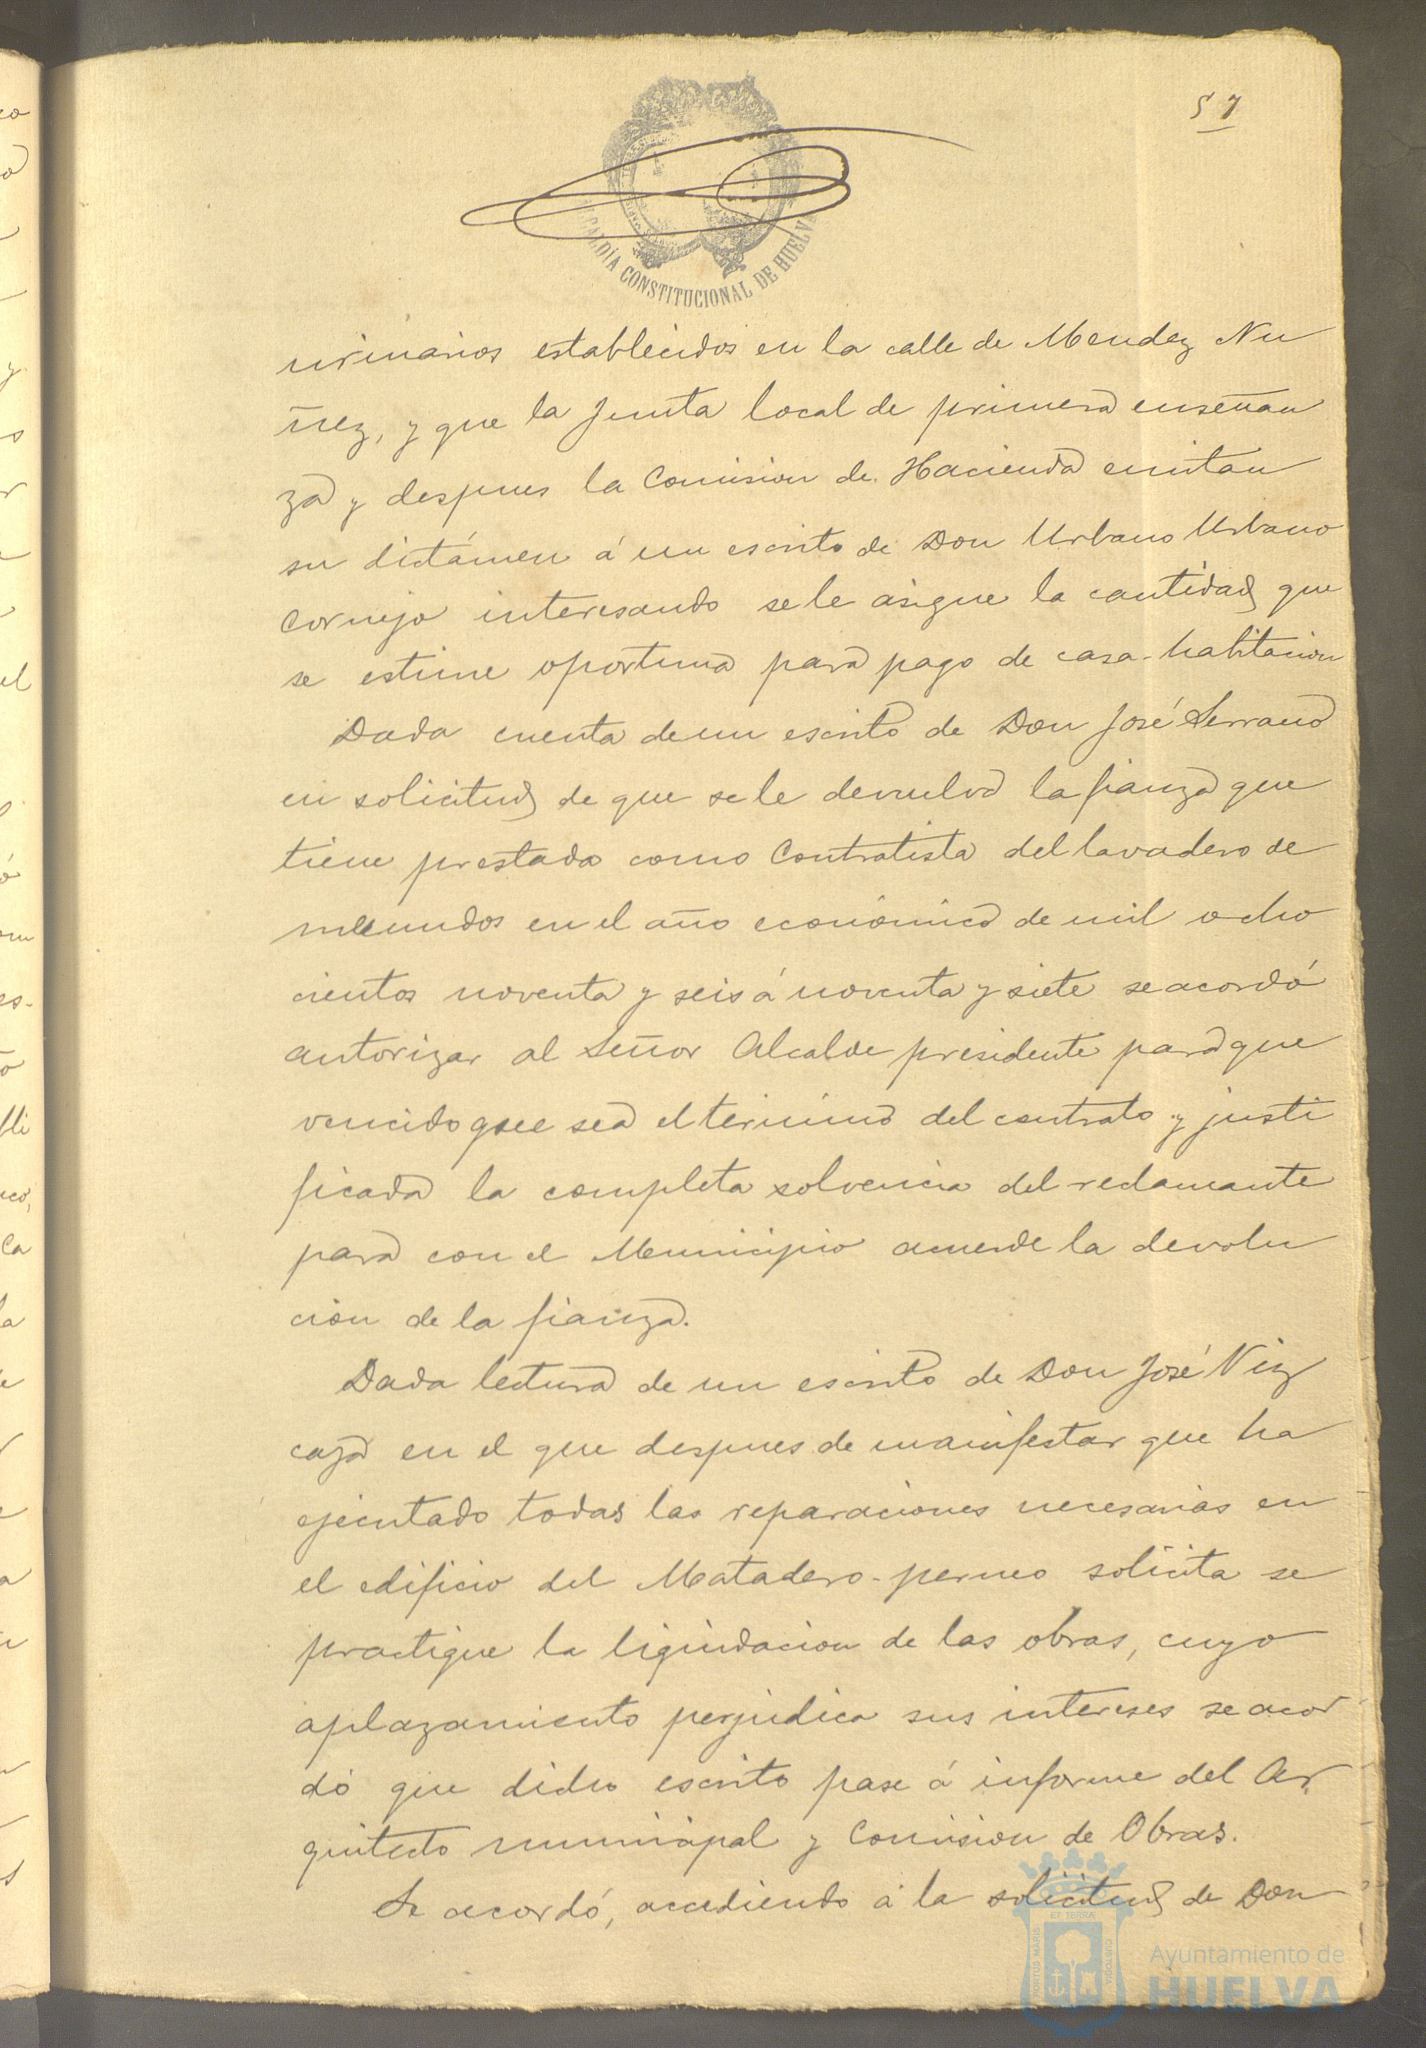 57
ALCALDÍA CONSTITUCIONAL DE HUELVA
urinarios establecidos en la calle de Mendez Nu
ñez, y que la Junta local de primera enseñan
za y despues la Comision de Hacienda emitan
su dictámen á un escrito de Don Urbano Urbano
Cornejo interesando se le asigne la cantidad que
se estime oportuna para pago de casa-habitacion
Dada cuenta de un escrito de Don José Serrano
en solicitud de que se le devuelva la fianza que
tiene prestada como Contratista del lavadero de
menudos en el año económico de mil ocho
cientos noventa y seis á noventa y siete se acordó
autorizar al Señor Alcalde presidente para que
vencido que sea el término del contrato y justi
ficada la completa solvencia del reclamante
para con el Municipio acuerde la devolu
ción de la fianza.
Dada lectura de un escrito de Don José Viz
caya en el que despues de manifestar que ha
ejecutado todas las reparaciones necesarias en
el edificio del Matadero-perneo solicita se
practique la liquidacion de las obras, cuyo
aplazamiento perjudica sus intereses se acor
dó que dicho escrito pase á informe del Ar
quitecto municipal y Comision de Obras.
Se acordó, accediendo á la solicitud de Don
Ayuntamiento de
HUELVA